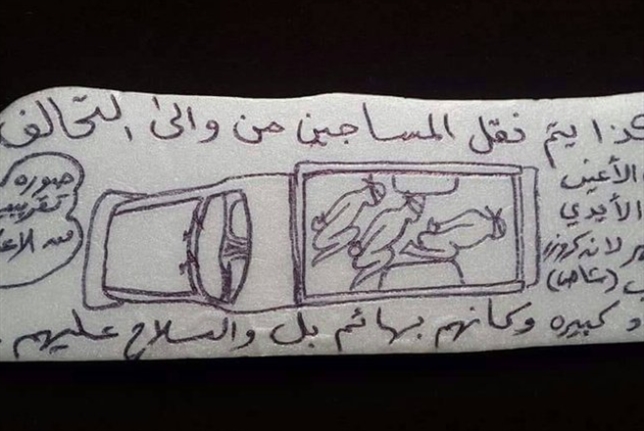 كذا يتم نقل المساجين من والى التحالف
الأعين
الأيدي
لاندكروزر
(شاص)
صوره
تقريبيه
و كبيره وكانهم بهائم بل والسلاح عليهم